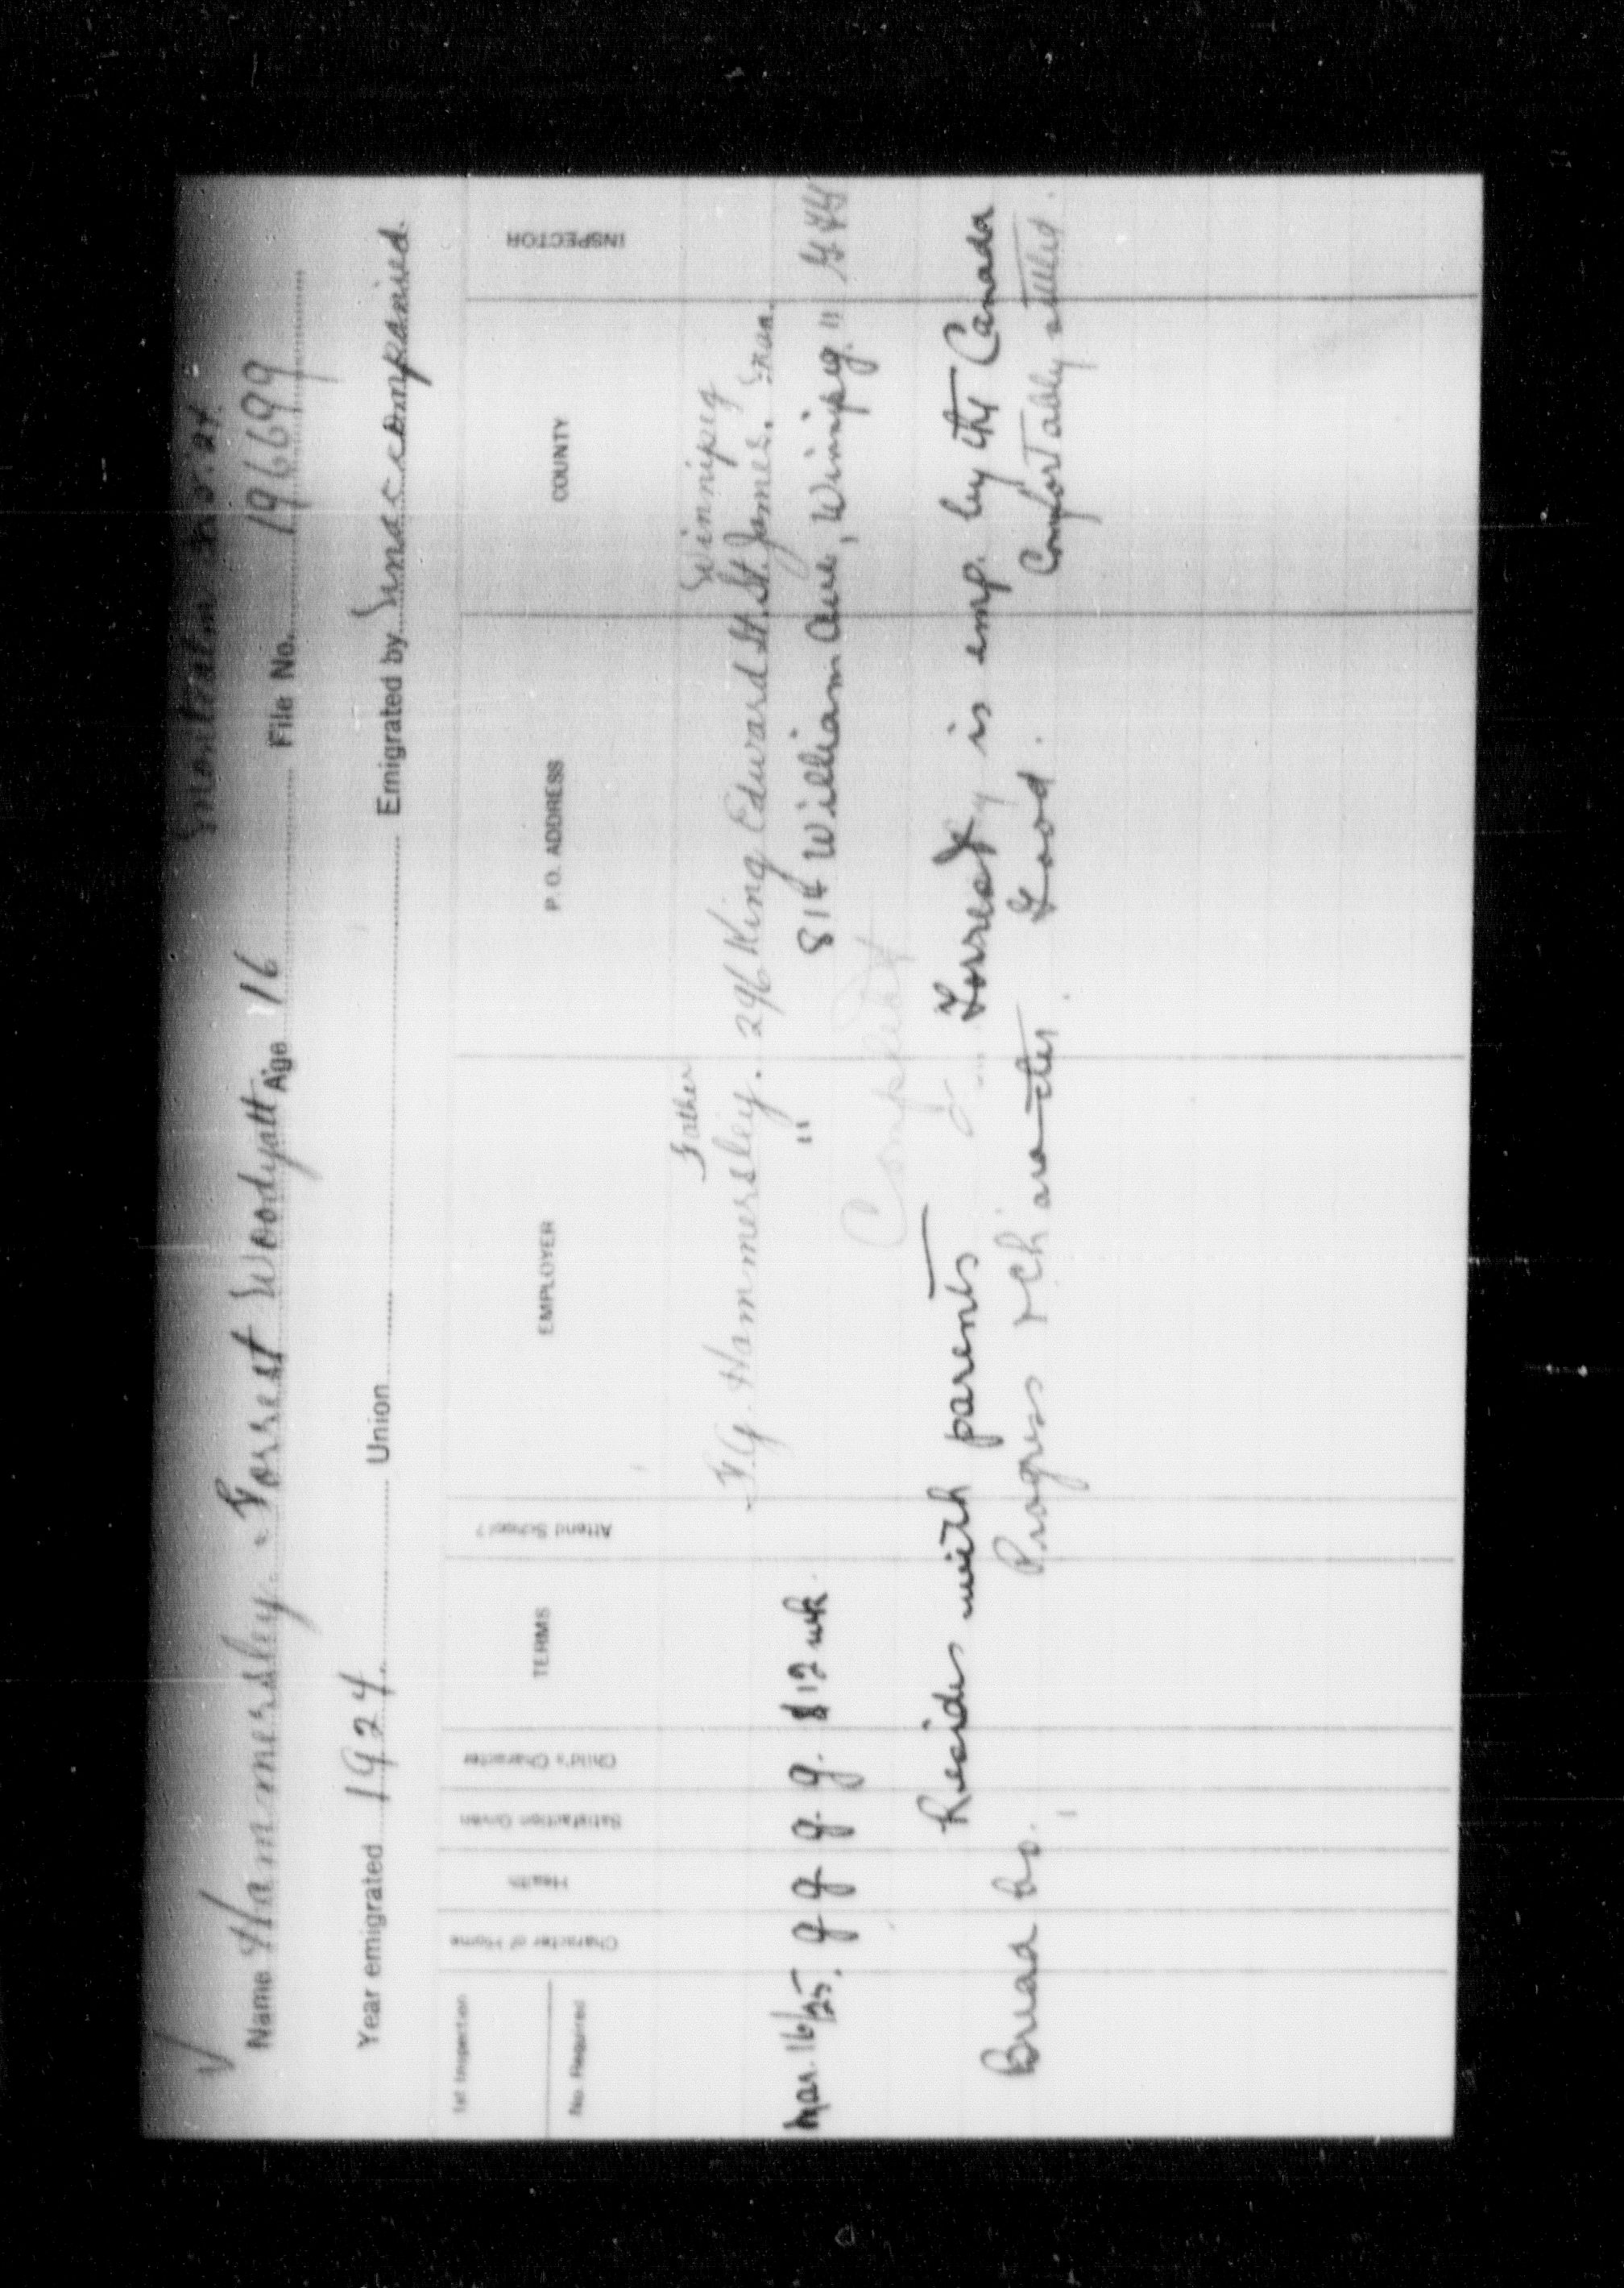 Name Hammersley. Forrest Woodyatt Age 16 File No. 196699
Year emigrated 1924. Union Emigrated by Unaccompanied.
1st Inspection
No. Required
Character of Home
Health
Satisfaction Given
Child's Character
TERMS
Attend School?
EMPLOYER
P. O. ADDRESS
COUNTY
INSPECTOR
Father Winnipeg
F.G. Hammersley. 296 King Edward St. St. James. Man.
Mar. 16/25. g g g. g. $12 wk. " 814 William Ave, Winnipeg. "
Complete
Resides with parents Forrest is emp. by the Canada
Bread Co. Progress & Character Good. Comfortably settled.